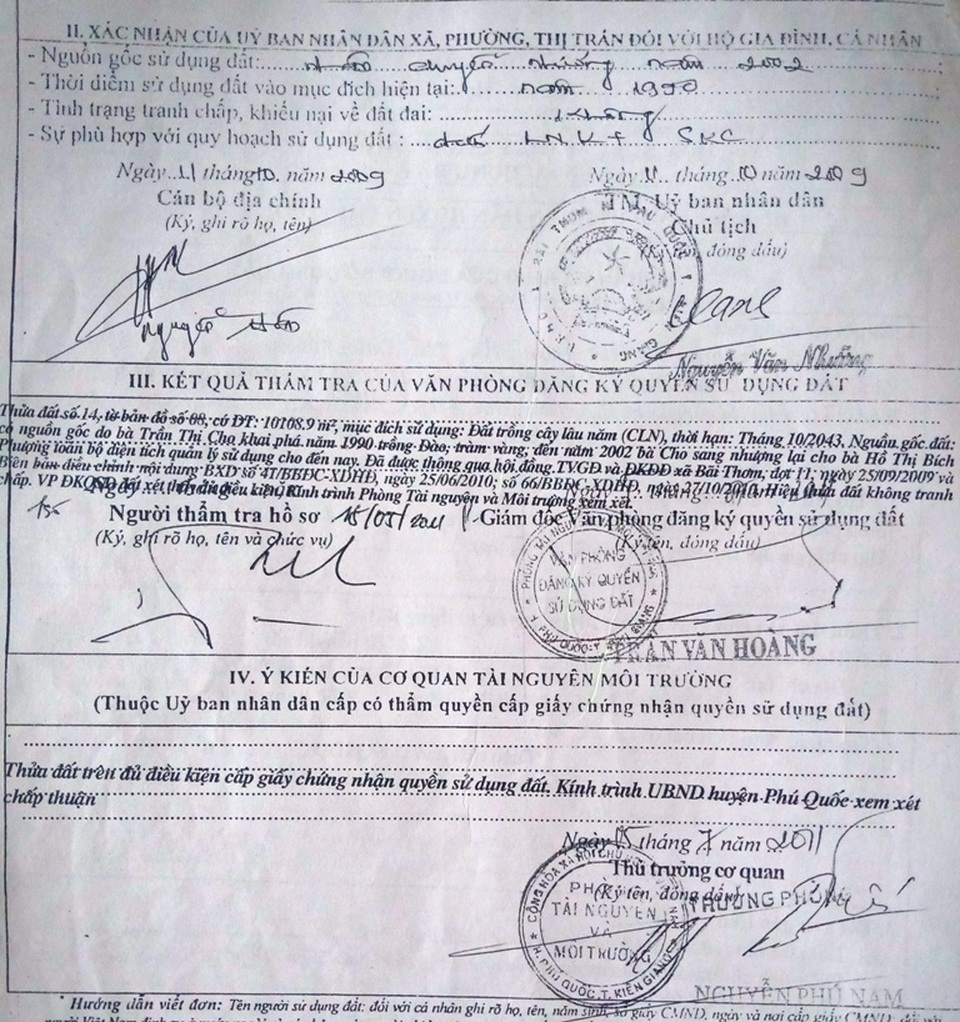 II. XÁC NHẬN CỦA UỶ BAN NHÂN DÂN XÃ, PHƯỜNG, THỊ TRẤN ĐỐI VỚI HỘ GIA ĐÌNH, CÁ NHÂN
- Nguồn gốc sử dụng đất: nhận chuyển nhượng năm 2002
- Thời điểm sử dụng đất vào mục đích hiện tại: năm 1990
- Tình trạng tranh chấp, khiếu nại về đất đai: không
- Sự phù hợp với quy hoạch sử dụng đất : SKC
Ngày 11 tháng 10 năm 2009
Cán bộ địa chính
(Ký, ghi rõ họ, tên)
Nguyễn
Ngày 11 tháng 10 năm 2009
TM. Uỷ ban nhân dân
Chủ tịch
(Ký tên, đóng dấu)
Nguyễn Văn Nhường
III. KẾT QUẢ THẨM TRA CỦA VĂN PHÒNG ĐĂNG KÝ QUYỀN SỬ DỤNG ĐẤT
Thửa đất số 14, tờ bản đồ số 08, có DT: 10108.9 m², mục đích sử dụng: Đất trồng cây lâu năm (CLN), thời hạn: Tháng 10/2043, Nguồn gốc đất:
có nguồn gốc do bà Trần Thị Cho khai phá năm 1990 trồng Đào, tràm vàng, đến năm 2002 bà Cho sang nhượng lại cho bà Hồ Thị Bích
Phượng toàn bộ diện tích quản lý sử dụng cho đến nay. Đã được thông qua hội đồng TVGĐ và ĐKĐĐ xã Bãi Thơm, đợt 11, ngày 25/09/2009 và
Biên bản điều chỉnh nội dung BXD số 41/BBĐC-XDHĐ, ngày 25/06/2010; số 66/BBĐC-XDHĐ, ngày 27/10/2010. Hiện thửa đất không tranh
chấp. VP ĐKQSD đất xét thấy đủ điều kiện, Kính trình Phòng Tài nguyên và Môi trường xem xét.
Người thẩm tra hồ sơ 18/05/2011
(Ký, ghi rõ họ, tên và chức vụ)
Giám đốc Văn phòng đăng ký quyền sử dụng đất
(Ký tên, đóng dấu)
VĂN PHÒNG
ĐĂNG KÝ QUYỀN
SỬ DỤNG ĐẤT
TRẦN VĂN HOÀNG
IV. Ý KIẾN CỦA CƠ QUAN TÀI NGUYÊN MÔI TRƯỜNG
(Thuộc Uỷ ban nhân dân cấp có thẩm quyền cấp giấy chứng nhận quyền sử dụng đất)
Thửa đất trên đủ điều kiện cấp giấy chứng nhận quyền sử dụng đất, Kính trình UBND huyện Phú Quốc xem xét
chấp thuận
Ngày 05 tháng 7 năm 2011
Thủ trưởng cơ quan
(Ký tên, đóng dấu)
TRƯỞNG PHÒNG
PHÒNG
TÀI NGUYÊN
VÀ
MÔI TRƯỜNG
H. PHÚ QUỐC T. KIÊN GIANG
NGUYỄN PHÚ NAM
* Hướng dẫn viết đơn: Tên người sử dụng đất: đối với cá nhân ghi rõ họ, tên, năm sinh, số giấy CMND, ngày và nơi cấp giấy CMND; đối với